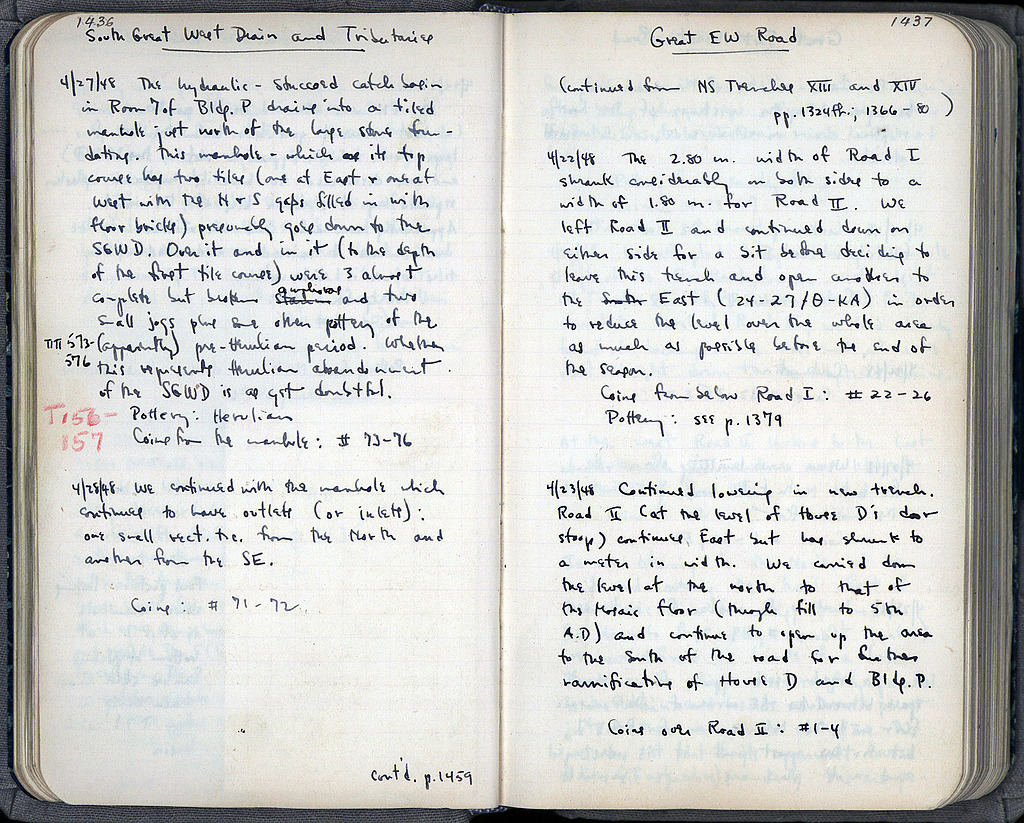 1436
South Great West Drain and Tributaries
4/27/48 The hydraulic-stuccoed catch basin
in Room 7 of Bldg. P drains into a tiled
manhole just north of the large stone foun-
dation. This manhole - which as its top
course has two tiles (one at East & one at
West with the N & S gaps filled in with
floor bricks) presumably goes down to the
SGWD. Over it and in it (to the depth
of the first tile course) were 3 almost
amphoras
complete but broken and two
small jugs plus some other pottery of the
TΠ 573- (apparently) pre-Herulian period. Whether
576 this represents Herulian abandonment
of the SGWD is as yet doubtful.
T156- Pottery: Herulian
157 Coins from the manhole: # 73-76
4/28/48 We continued with the manhole which
continues to have outlets (or inlets):
one small rect. tile from the North and
another from the SE.
Coins: # 71-72.
cont'd. p. 1459
1437
Great EW Road
(Continued from NS Trenches XIII and XIV
pp. 1324ff.; 1366-80)
4/22/48 The 2.80 m. width of Road I
shrank considerably on both sides to a
width of 1.80 m. for Road II. We
left Road II and continued down on
either side for a bit before deciding to
leave this trench and open another to
the South East (24-27/Θ-KA) in order
to reduce the level over the whole area
as much as possible before the end of
the season.
Coins from below Road I: # 22-26
Pottery: see p. 1379
4/23/48 Continued lowering in new trench.
Road II (at the level of House D's door
stoop) continues East but has shrunk to
a meter in width. We carried down
the level at the north to that of
the Mosaic floor (through fill to 5th
A.D) and continue to open up the area
to the South of the road for further
ramifications of House D and Bldg. P.
Coins over Road II: #1-4